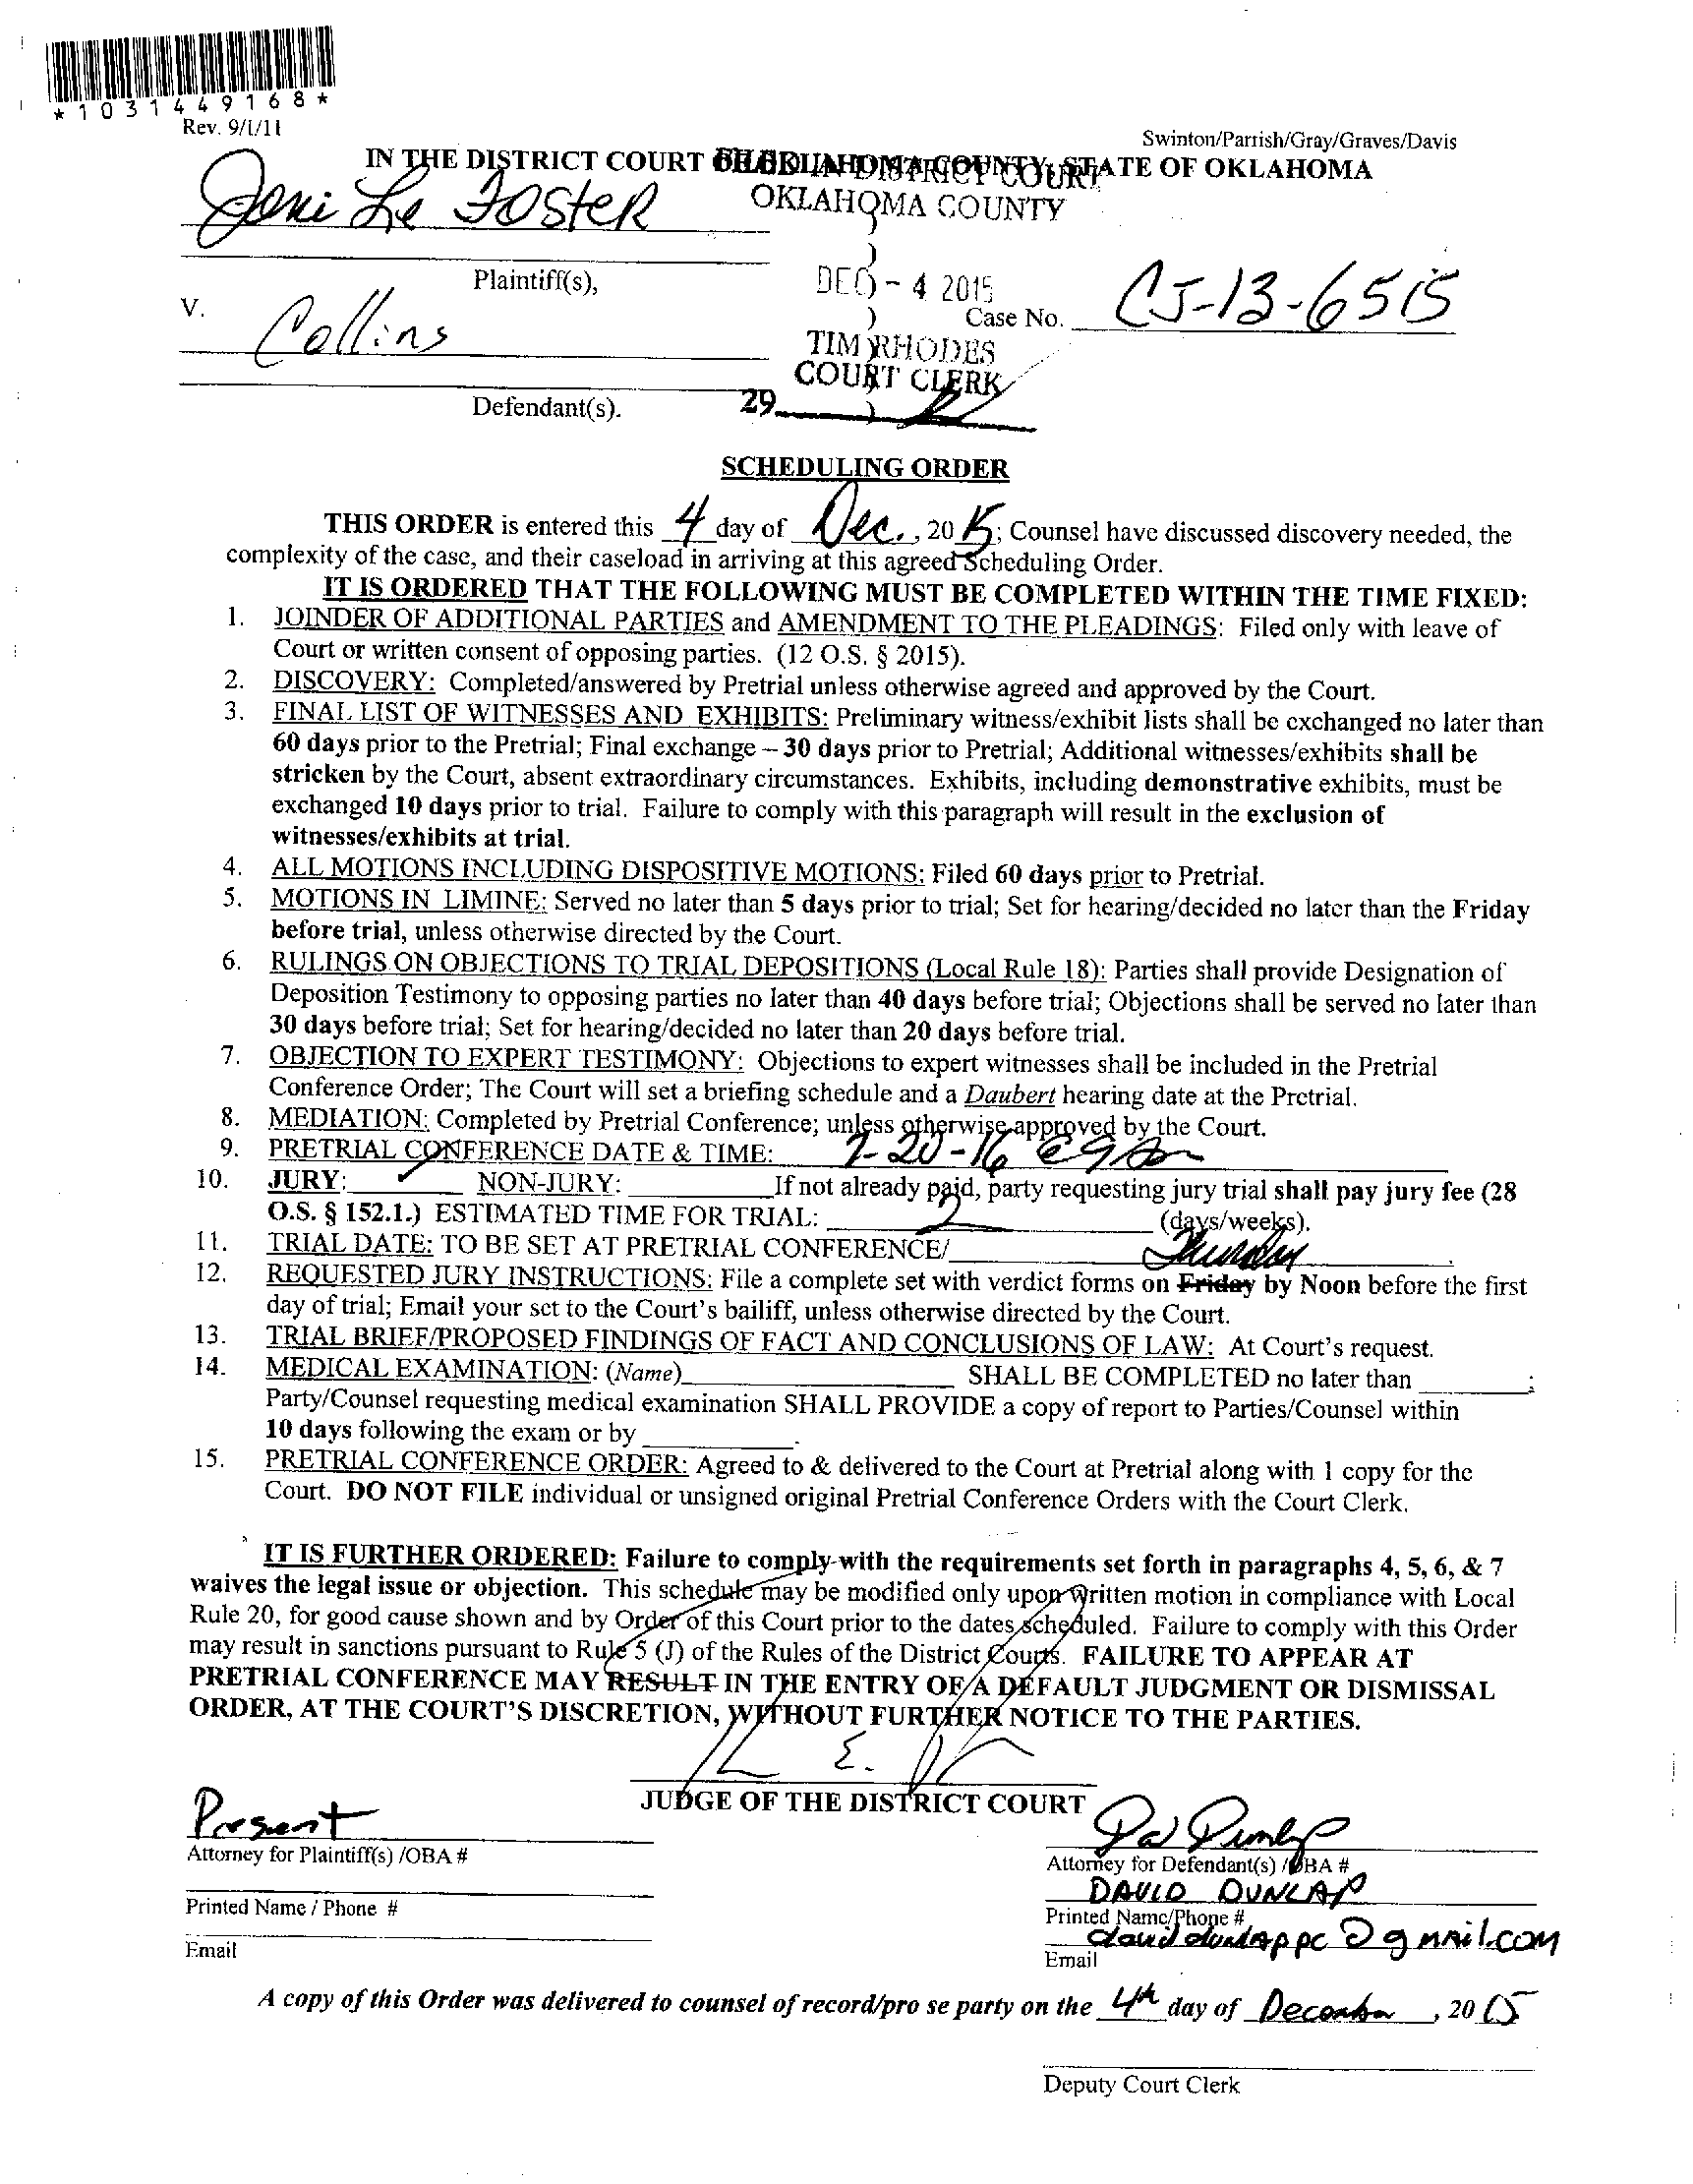 *1031449168*
Rev. 9/1/11
Swinton/Parrish/Gray/Graves/Davis
IN THE DISTRICT COURT OF OKLAHOMA COUNTY, STATE OF OKLAHOMA
FILED IN DISTRICT COURT
OKLAHOMA COUNTY
Joni Le Foster
Plaintiff(s),
DEC - 4 2015
v.
Case No. CJ-13-6515
Collins
TIM RHODES
COURT CLERK
Defendant(s).
29
SCHEDULING ORDER
THIS ORDER is entered this 4 day of Dec., 2015; Counsel have discussed discovery needed, the
complexity of the case, and their caseload in arriving at this agreed Scheduling Order.
IT IS ORDERED THAT THE FOLLOWING MUST BE COMPLETED WITHIN THE TIME FIXED:
1. JOINDER OF ADDITIONAL PARTIES and AMENDMENT TO THE PLEADINGS: Filed only with leave of
Court or written consent of opposing parties. (12 O.S. § 2015).
2. DISCOVERY: Completed/answered by Pretrial unless otherwise agreed and approved by the Court.
3. FINAL LIST OF WITNESSES AND EXHIBITS: Preliminary witness/exhibit lists shall be exchanged no later than
60 days prior to the Pretrial; Final exchange – 30 days prior to Pretrial; Additional witnesses/exhibits shall be
stricken by the Court, absent extraordinary circumstances. Exhibits, including demonstrative exhibits, must be
exchanged 10 days prior to trial. Failure to comply with this paragraph will result in the exclusion of
witnesses/exhibits at trial.
4. ALL MOTIONS INCLUDING DISPOSITIVE MOTIONS: Filed 60 days prior to Pretrial.
5. MOTIONS IN LIMINE: Served no later than 5 days prior to trial; Set for hearing/decided no later than the Friday
before trial, unless otherwise directed by the Court.
6. RULINGS ON OBJECTIONS TO TRIAL DEPOSITIONS (Local Rule 18): Parties shall provide Designation of
Deposition Testimony to opposing parties no later than 40 days before trial; Objections shall be served no later than
30 days before trial; Set for hearing/decided no later than 20 days before trial.
7. OBJECTION TO EXPERT TESTIMONY: Objections to expert witnesses shall be included in the Pretrial
Conference Order; The Court will set a briefing schedule and a Daubert hearing date at the Pretrial.
8. MEDIATION: Completed by Pretrial Conference; unless otherwise approved by the Court.
9. PRETRIAL CONFERENCE DATE & TIME: 7-20-16 @ 9
10. JURY: ✓ NON-JURY: If not already paid, party requesting jury trial shall pay jury fee (28
O.S. § 152.1.) ESTIMATED TIME FOR TRIAL: 2 (days/weeks).
11. TRIAL DATE: TO BE SET AT PRETRIAL CONFERENCE/
Thursday
12. REQUESTED JURY INSTRUCTIONS: File a complete set with verdict forms on Friday by Noon before the first
day of trial; Email your set to the Court's bailiff, unless otherwise directed by the Court.
13. TRIAL BRIEF/PROPOSED FINDINGS OF FACT AND CONCLUSIONS OF LAW: At Court's request.
14. MEDICAL EXAMINATION: (Name) SHALL BE COMPLETED no later than ;
Party/Counsel requesting medical examination SHALL PROVIDE a copy of report to Parties/Counsel within
10 days following the exam or by .
15. PRETRIAL CONFERENCE ORDER: Agreed to & delivered to the Court at Pretrial along with 1 copy for the
Court. DO NOT FILE individual or unsigned original Pretrial Conference Orders with the Court Clerk.
IT IS FURTHER ORDERED: Failure to comply with the requirements set forth in paragraphs 4, 5, 6, & 7
waives the legal issue or objection. This schedule may be modified only upon written motion in compliance with Local
Rule 20, for good cause shown and by Order of this Court prior to the dates scheduled. Failure to comply with this Order
may result in sanctions pursuant to Rule 5 (J) of the Rules of the District Courts. FAILURE TO APPEAR AT
PRETRIAL CONFERENCE MAY RESULT IN THE ENTRY OF A DEFAULT JUDGMENT OR DISMISSAL
ORDER, AT THE COURT'S DISCRETION, WITHOUT FURTHER NOTICE TO THE PARTIES.
JUDGE OF THE DISTRICT COURT
Present
Attorney for Plaintiff(s) /OBA #
Attorney for Defendant(s) /OBA #
DAVID DUNLAP
Printed Name / Phone #
Printed Name/Phone #
daviddunlappc@gmail.com
Email
Email
A copy of this Order was delivered to counsel of record/pro se party on the 4th day of December, 2015
Deputy Court Clerk